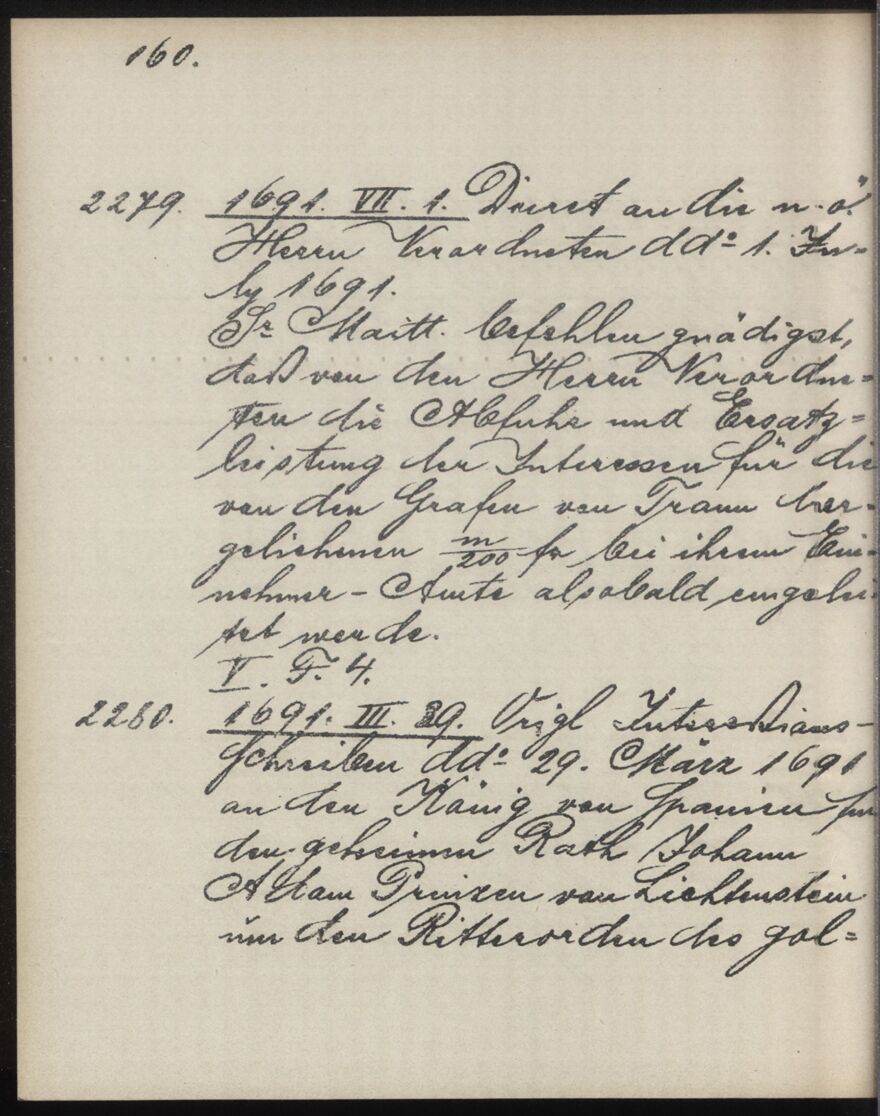 160.
2279. 1691. VII. 1. Decret an die n. ö.
Herrn Verordneten ddo 1. Ju-
ly 1691.
Sr Maitt. befehlen gnädigst,
daß von den Herrn Verordne-
ten die Abfuhr und Ersatz-
leistung der Interessen für die
von den Grafen von Traun her-
geliehenen m/200 fr bei ihrem Ein-
nehmer-Amte alsobald eingelei-
tet werde.
V. F. 4.
2280. 1691. III. 29. Origl Interceßions-
schreiben ddo 29. März 1691
an den König von Spanien für
den geheimen Rath Johann
Adam Prinzen von Lichtenstein
um den Ritterorden des gol-